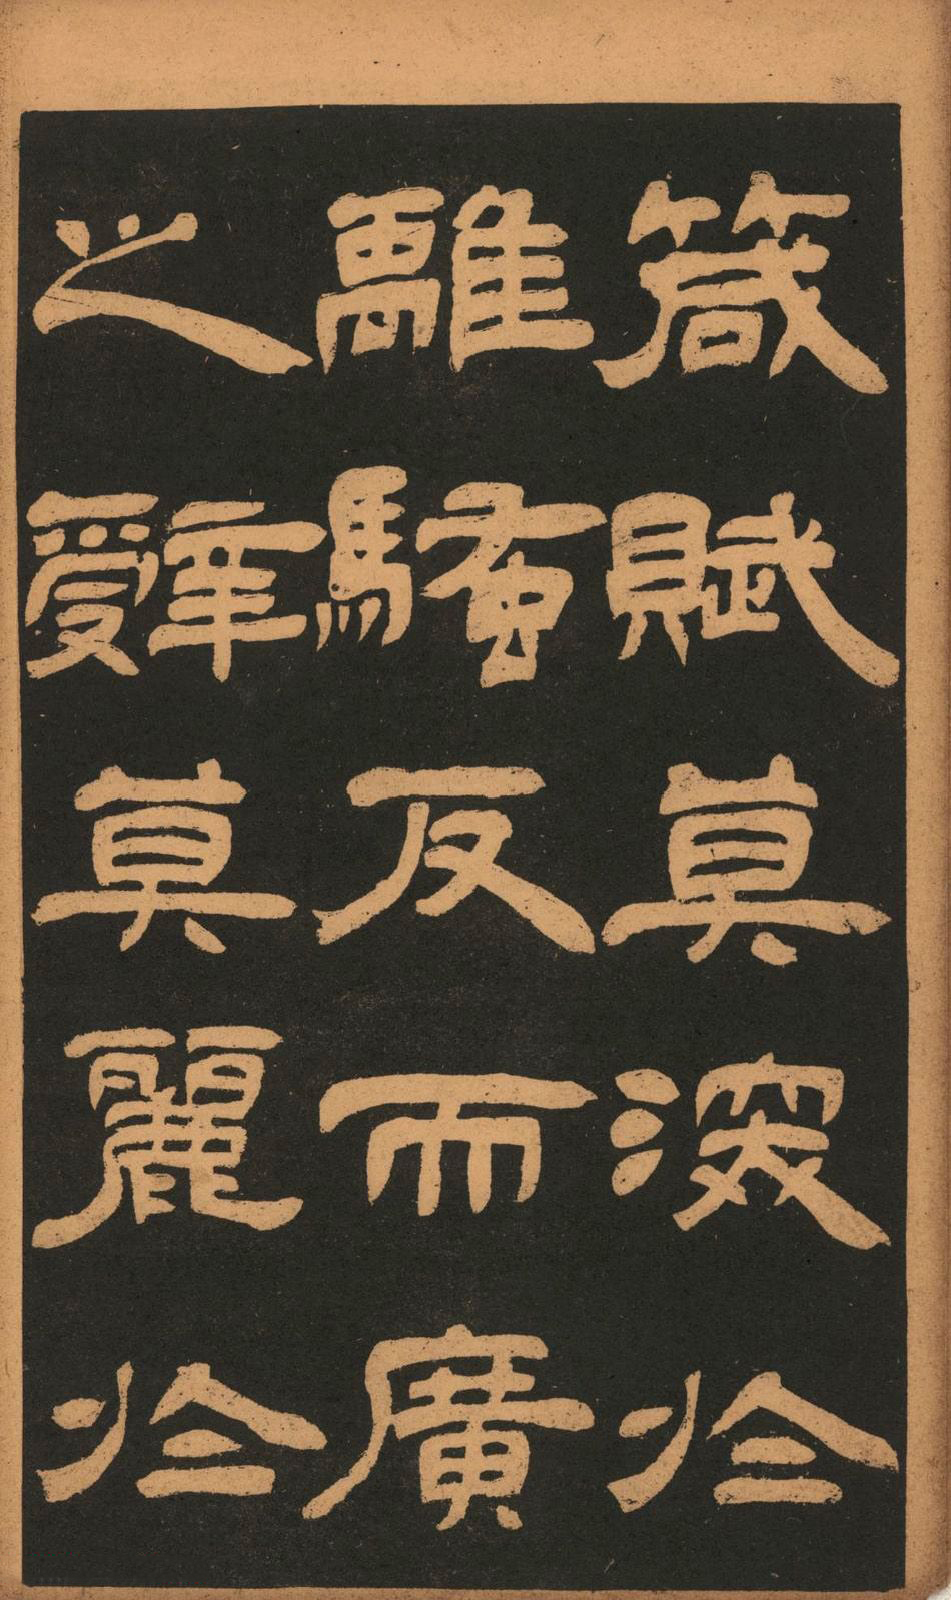 箴賦莫深於
離騷反而廣
之辭莫麗於